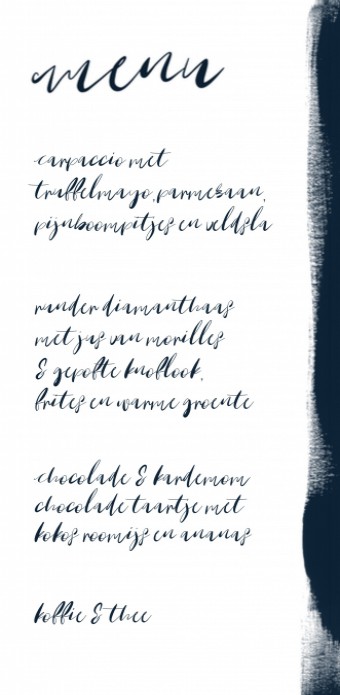 menu
carpaccio met
truffelmayo, parmezaan,
pijnboompitjes en veldsla
runder diamanthaas
met jus van morilles
& gepofte knoflook,
frites en warme groente
chocolade & kardemom
chocoladetaartje met
kokos roomijs en ananas
koffie & thee